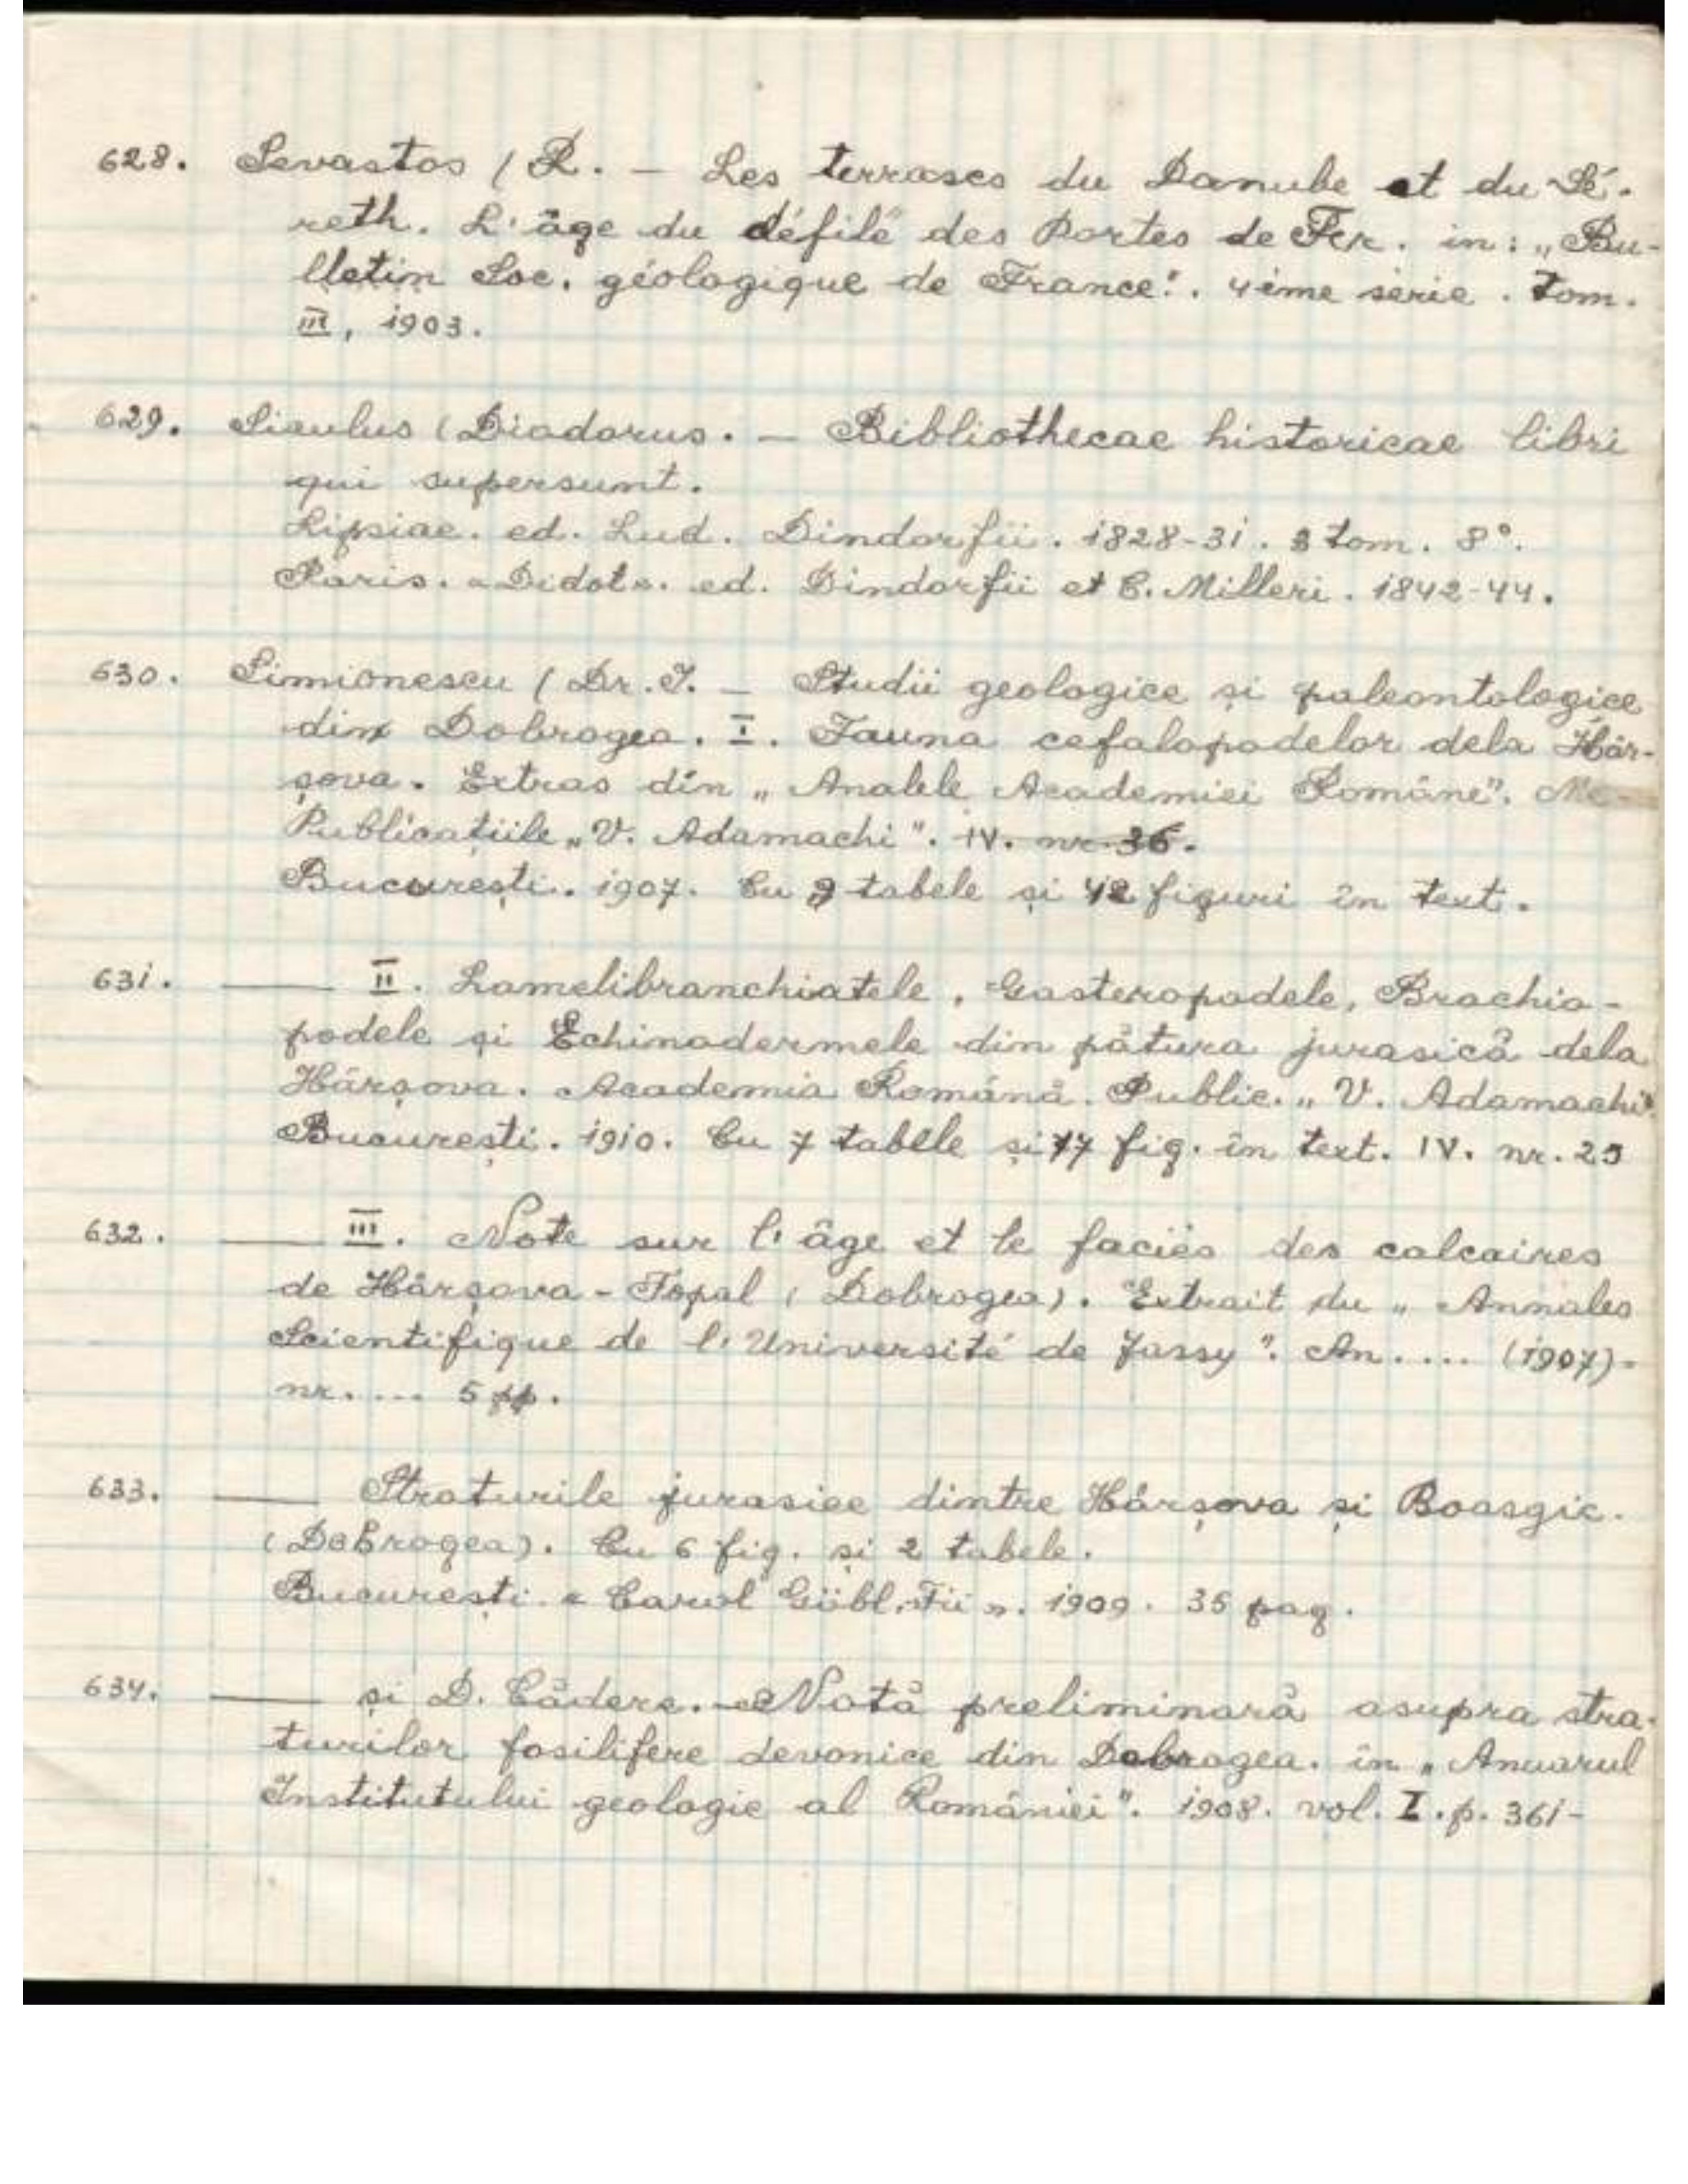 628. Sevastos (R. — Les terrases du Danube et du Sé-
reth. L'âge du défilé des Portes de Fer. in: „Bu-
lletin Soc. géologique de France". 4ème série. Tom.
III, 1903.
629. Siculus (Diodorus. — Bibliothecae historicae libri
qui supersunt.
Lipsiae. ed. Lud. Dindorfii. 1828-31. 3 tom. 8°.
Paris. «Didot». ed. Dindorfii et C. Milleri. 1842-44.
630. Simionescu (Dr. I. — Studii geologice și paleontologice
din Dobrogea. I. Fauna cefalopodelor dela Hâr-
șova. Extras din „Analele Academiei Române".
Publicațiile „V. Adamachi". IV. nr. 36.
București. 1907. Cu 9 tabele și 42 figuri în text.
631. —— II. Lamelibranchiatele, Gasteropodele, Brachio-
podele și Echinodermele din pătura jurasică dela
Hârșova. Academia Română. Public. „V. Adamachi"
București. 1910. Cu 7 tabele și 17 fig. în text. IV. nr. 25
632. —— III. Note sur l'âge et le faciès des calcaires
de Hârșova - Topal (Dobrogea). Extrait du „Annales
Scientifique de l'Université de Jassy". An.... (1907)-
nr.... 5 pp.
633. —— Straturile jurasice dintre Hârșova și Boasgic.
(Dobrogea). Cu 6 fig. și 2 tabele.
București. «Carol Göbl, Fii». 1909. 35 pag.
634. —— și D. Cădere. — Notă preliminară asupra stra-
turilor fosilifere devonice din Dobrogea. în „Anuarul
Institutului geologic al României". 1908. vol. I. p. 361-